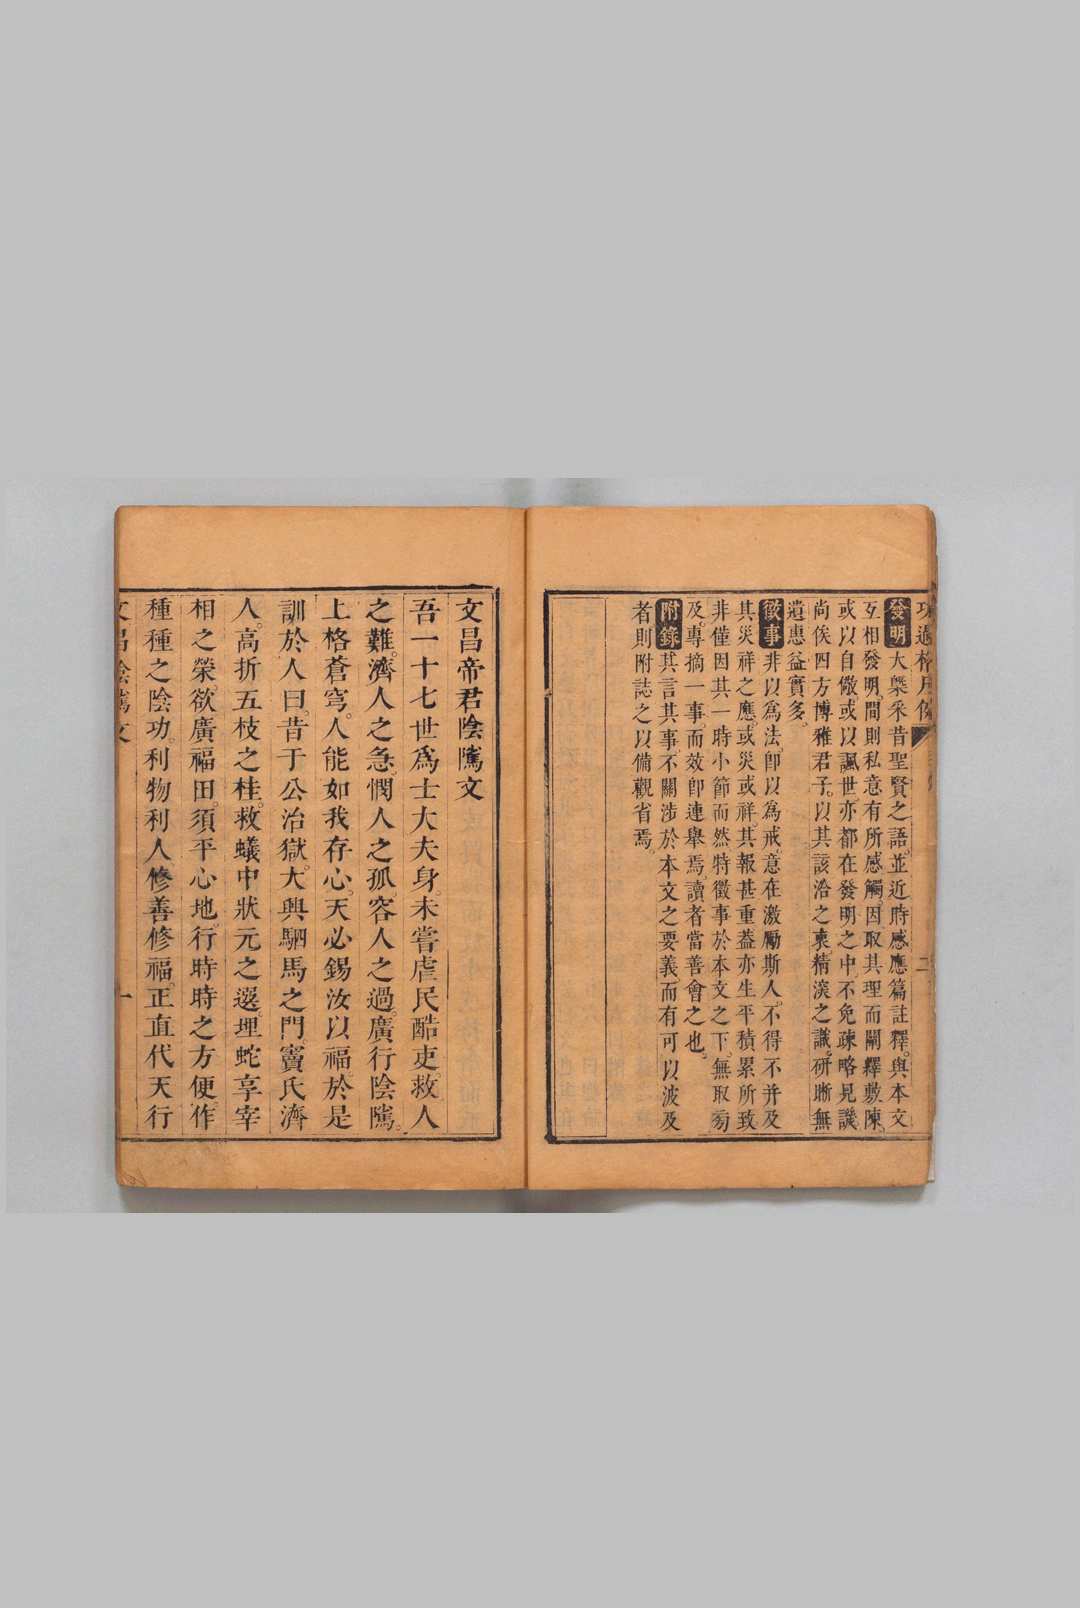 發明大槩采昔聖賢之語。並近時感應篇註釋。與本文
互相發明。間則私意有所感觸。因取其理而闡釋敷陳。
或以自儆。或以諷世。亦都在發明之中。不免疎略見譏。
尚俟四方博雅君子。以其該洽之衷。精湥之識。研晰無
遺。惠益實多。
徵事非以為法。卽以為戒。意在激勵斯人。不得不并及
其災祥之應。或災或祥。其報甚重。葢亦生平積累所致。
非僅因其一時小節而然。特徵事於本文之下。無取旁
及。專摘一事。而效卽連舉焉。讀者當善會之也。
附錄其言其事。不關涉於本文之要義。而有可以波及
者。則附誌之。以備觀省焉。
文昌帝君陰隲文
吾一十七世爲士大夫身。未嘗虐民酷吏。救人
之難。濟人之急。憫人之孤。容人之過。廣行陰隲。
上格蒼穹。人能如我存心。天必錫汝以福。於是
訓於人曰。昔于公治獄。大興駟馬之門。竇氏濟
人。高折五枝之桂。救蟻中狀元之選。埋蛇享宰
相之榮。欲廣福田。須平心地。行時時之方便。作
種種之陰功。利物利人。修善修福。正直代天行